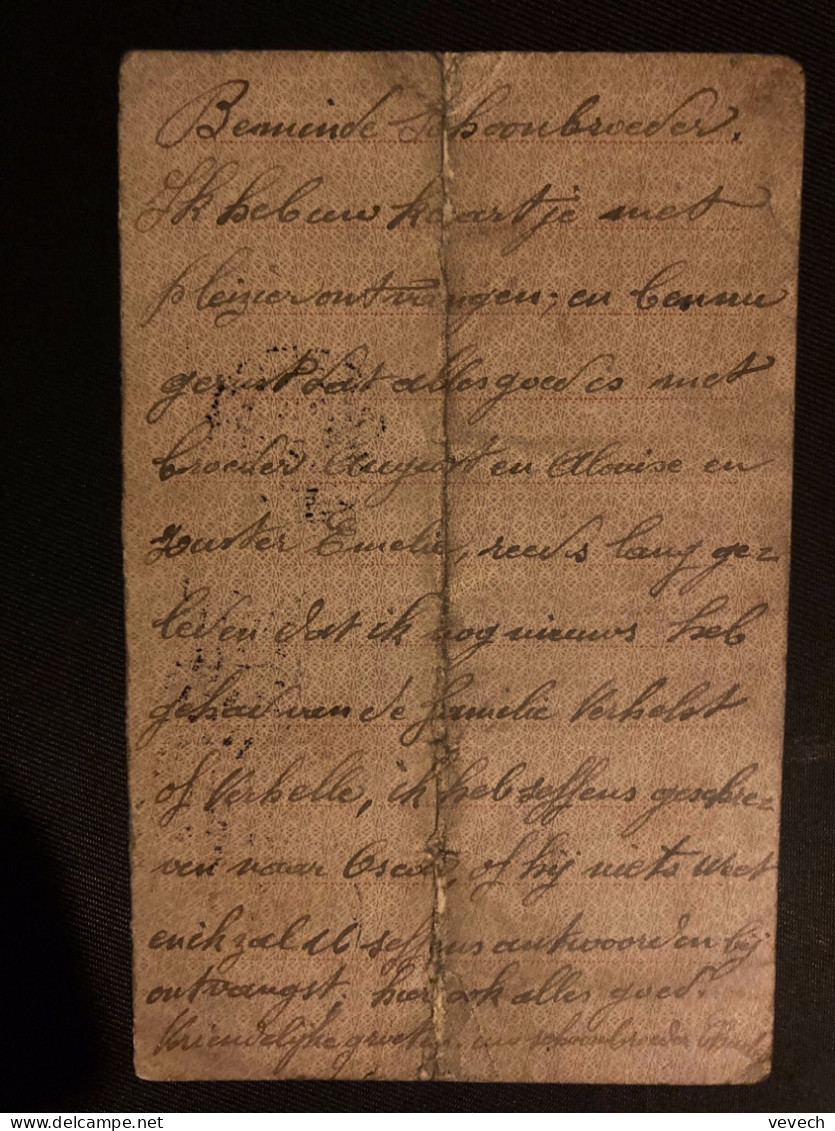 Beminde schoonbroeder,
Ik heb uw kaartje met
pleizier ontvangen; en ben nu
gerust dat alles goed is met
broeder August en Alouise en
zuster Emelie, reeds lang ge=
leden dat ik nog nieuws heb
gehad van de familie Verhelst
of Verhelle, ik heb seffens geschre=
ven naar Oscar, of hij niets weet
en ik zal U seffens antwoorden bij
ontvangst. hier ook alles goed.
Vriendelijke groeten. uw schoonbroeder
vevech